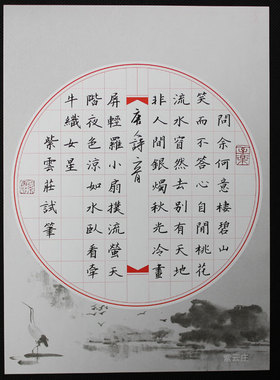 問余何意棲碧山
笑而不答心自閒桃花
流水窅然去別有天地
非人間銀燭秋光冷畫
唐詩二首
屏輕羅小扇撲流螢天
階夜色涼如水臥看牽
牛織女星
紫雲莊試筆
紫云庄